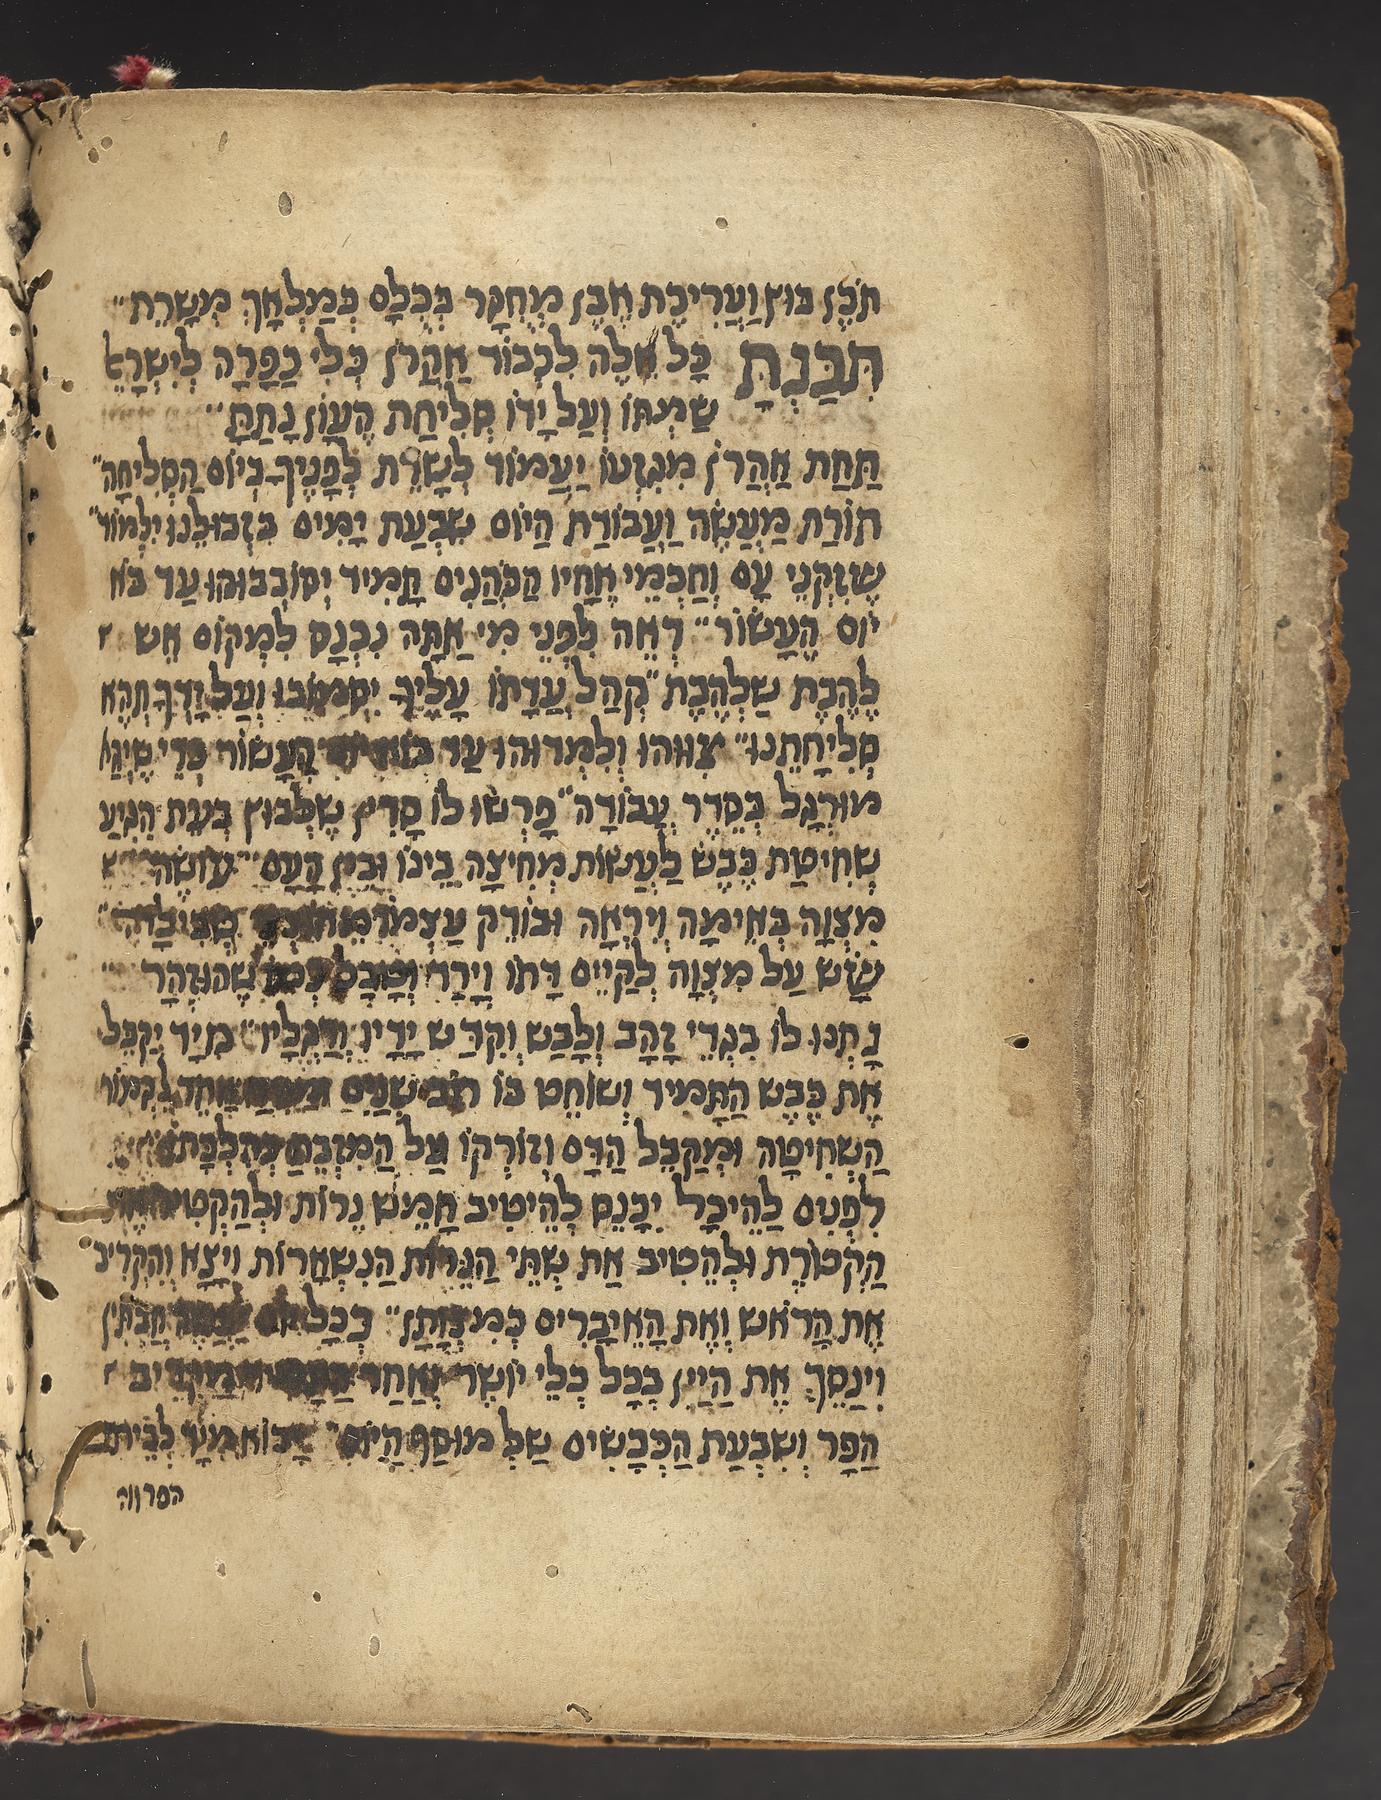 חֹבֶן בּוּץ וַעֲרִיכַת אֶבֶן מֶחְקָר בְּכְלָס כְּמַלְאָךְ מְשָׁרֵת״
תִּכַּנְתָּ כָּל אֵלֶּה לִכְבוֹד אַהֲרֹן כְּלִי כַפָּרָה לְיִשְׂרָאֵ
שַׂמְתּוֹ וְעַל יָדוֹ סְלִיחַת הֶעָוֹן נָתַתָּ״
תַּחַת אַהֲרֹן מִגִּזְעוֹ יַעֲמוֹד לְשָׁרֵת לְפָנֶיךָ בְּיוֹם הַסְּלִיחָה״
תּוֹרַת מַעֲשֶׂה וַעֲבוֹדַת הַיּוֹם שִׁבְעַת יָמִים בִּזְבוּלֵנוּ יִלְמוֹד״
שֶׁזִּקְנֵי עָם וְחַכְמֵי אֶחָיו הַכֹּהֲנִים תָּמִיד יְסוֹבְבוּהוּ עַד בֹּא
יוֹם הֶעָשׂוֹר״ רְאֵה לִפְנֵי מִי אַתָּה נִכְנָס לִמְקוֹם אֵשׁ
לֶהֶבֶת שַׁלְהֶבֶת״ קְהַל עֲדָתוֹ עָלֶיךָ יִסְמוֹכוּ וְעַל יָדְךָ תְּהֵא
סְלִיחָתֵנוּ״ צִוּוּהוּ וְלִמְּדוּהוּ עַד הֶעָשׂוֹר כְּדֵי שֶׁיְּהֵא
מוּרְגָּל בְּסֵדֶר עֲבוֹדָה״ פָּרְשׂוּ לוֹ סָדִין שֶׁלְּבוּץ בְּעֵת הִגִּיעַ
שְׁחִיטַת כֶּבֶשׂ לַעֲשׂוֹת מְחִיצָה בֵּינוֹ וּבֵין הָעָם״ עוֹשֶׂה
מִצְוָה בְּאֵימָה וְיִרְאָה וּבוֹדֵק עַצְמוֹ
שָׂשׂ עַל מִצְוָה לְקַיֵּים דָּתוֹ וְיָרַד וְטָבַל כְּמוֹ שֶׁהוּזְהָר
נָתְנוּ לוֹ בִּגְדֵי זָהָב וְלָבַשׁ וְקִדַּשׁ יָדָיו וְרַגְלָיו״ מִיָּד יְקַבֵּל
אֶת כֶּבֶשׂ הַתָּמִיד וְשׁוֹחֵט בּוֹ רוֹב שְׁנַיִם אַחֵר לִגְמוֹר
הַשְּׁחִיטָה וּמְקַבֵּל הַדָּם וְזוֹרְקוֹ עַל הַמִּזְבֵּחַ כְּהִלְכָתוֹ
לִפְנִים לַהֵיכָל יִכָּנֵס לְהֵיטִיב חָמֵשׁ נֵרוֹת וּלְהַקְטִיר אֶת
הַקְּטוֹרֶת וּלְהֵטִיב אֶת שְׁתֵּי הַנֵּרוֹת הַנִּשְׁאָרוֹת וְיָצָא וְהִקְרִיב
אֶת הָרֹאשׁ וְאֶת הָאֵיבָרִים כְּמִצְוָתָן״ חֲבִתִּין
וִינַסֵּךְ אֶת הַיַּיִן בְּכָל כְּלֵי יוֹשֶׁר וְאַחַר
הַפָּר וְשִׁבְעַת הַכְּבָשִׂים שֶׁל מוּסַף הַיּוֹם״ יָבוֹא מִיָּד לְבֵית
הפרווה